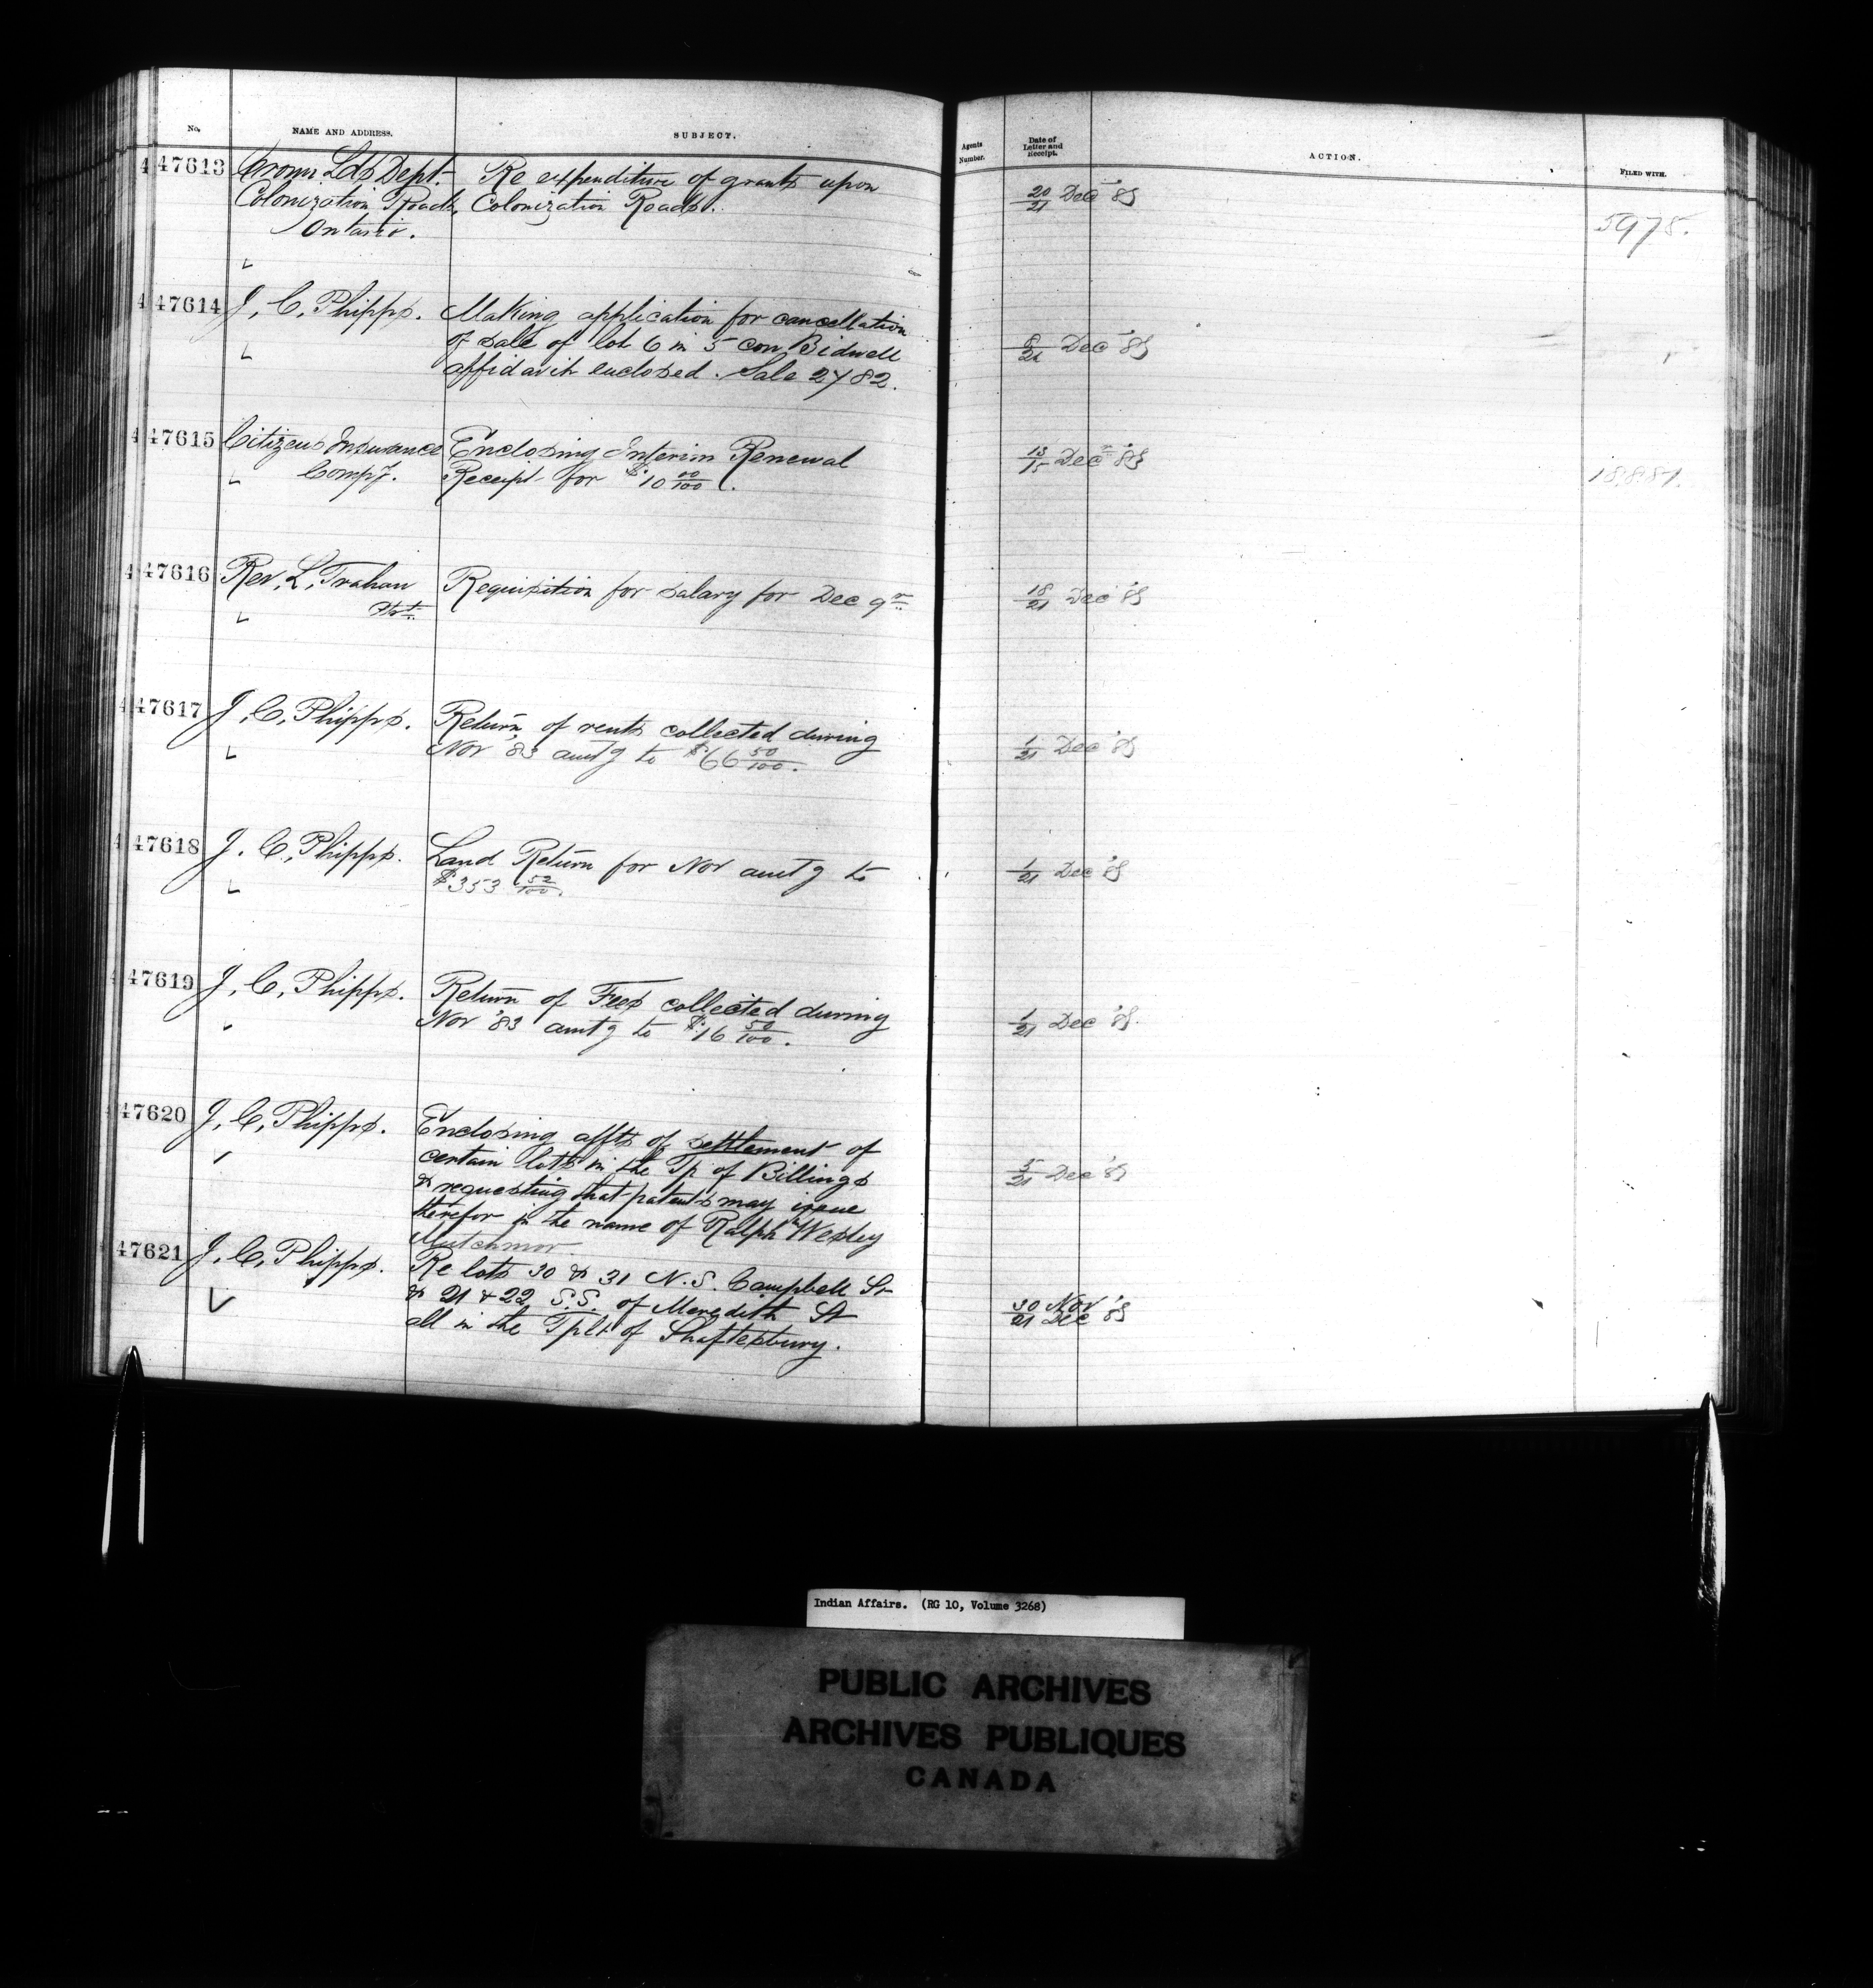 No. NAME AND ADDRESS. SUBJECT. Agents Number. Date of Letter and Receipt. ACTION. FILED WITH.
47613 Crown Lds Dept. Re expenditure of grants upon 20/21 Dec '83
Colonization Roads, Colonization Roads. 5975.
Ontario.
47614 J. C. Phipps. Making application for cancellation
of sale of lot 6 in 5 con Bidwell 8/21 Dec '83
affidavit enclosed. Sale 2782.
47615 Citizens Insurance Enclosing Interim Renewal 13/15 Dec '83
Compy. Receipt for $10 00/100. 18887.
47616 Rev, L, Trahan Requisition for salary for Dec qr 18/21 Dec '83
47617 J, C, Phipps. Return of rents collected during
Nov '83 amtg to $66 50/100. 1/21 Dec '83
47618 J. C, Phipps. Land Return for Nov amtg to 1/21 Dec '83
$353 52/100.
47619 J, C, Phipps. Return of Fees collected during
Nov '83 amtg to $16 50/100. 1/21 Dec '83.
47620 J, C, Phipps. Enclosing affts of settlement of
certain lots in the Tp of Billings 5/21 Dec '83
& requesting that patents may issue
therefor in the name of Ralph Wesley
Mutchmor.
47621 J, C, Phipps. Re lots 30 & 31 N.S. Campbell St
& 21 & 22 S.S. of Meredith St 30 Nov / 21 Dec '83
all in the Tplt of Shaftesbury.
Indian Affairs. (RG 10, Volume 3268)
PUBLIC ARCHIVES
ARCHIVES PUBLIQUES
CANADA